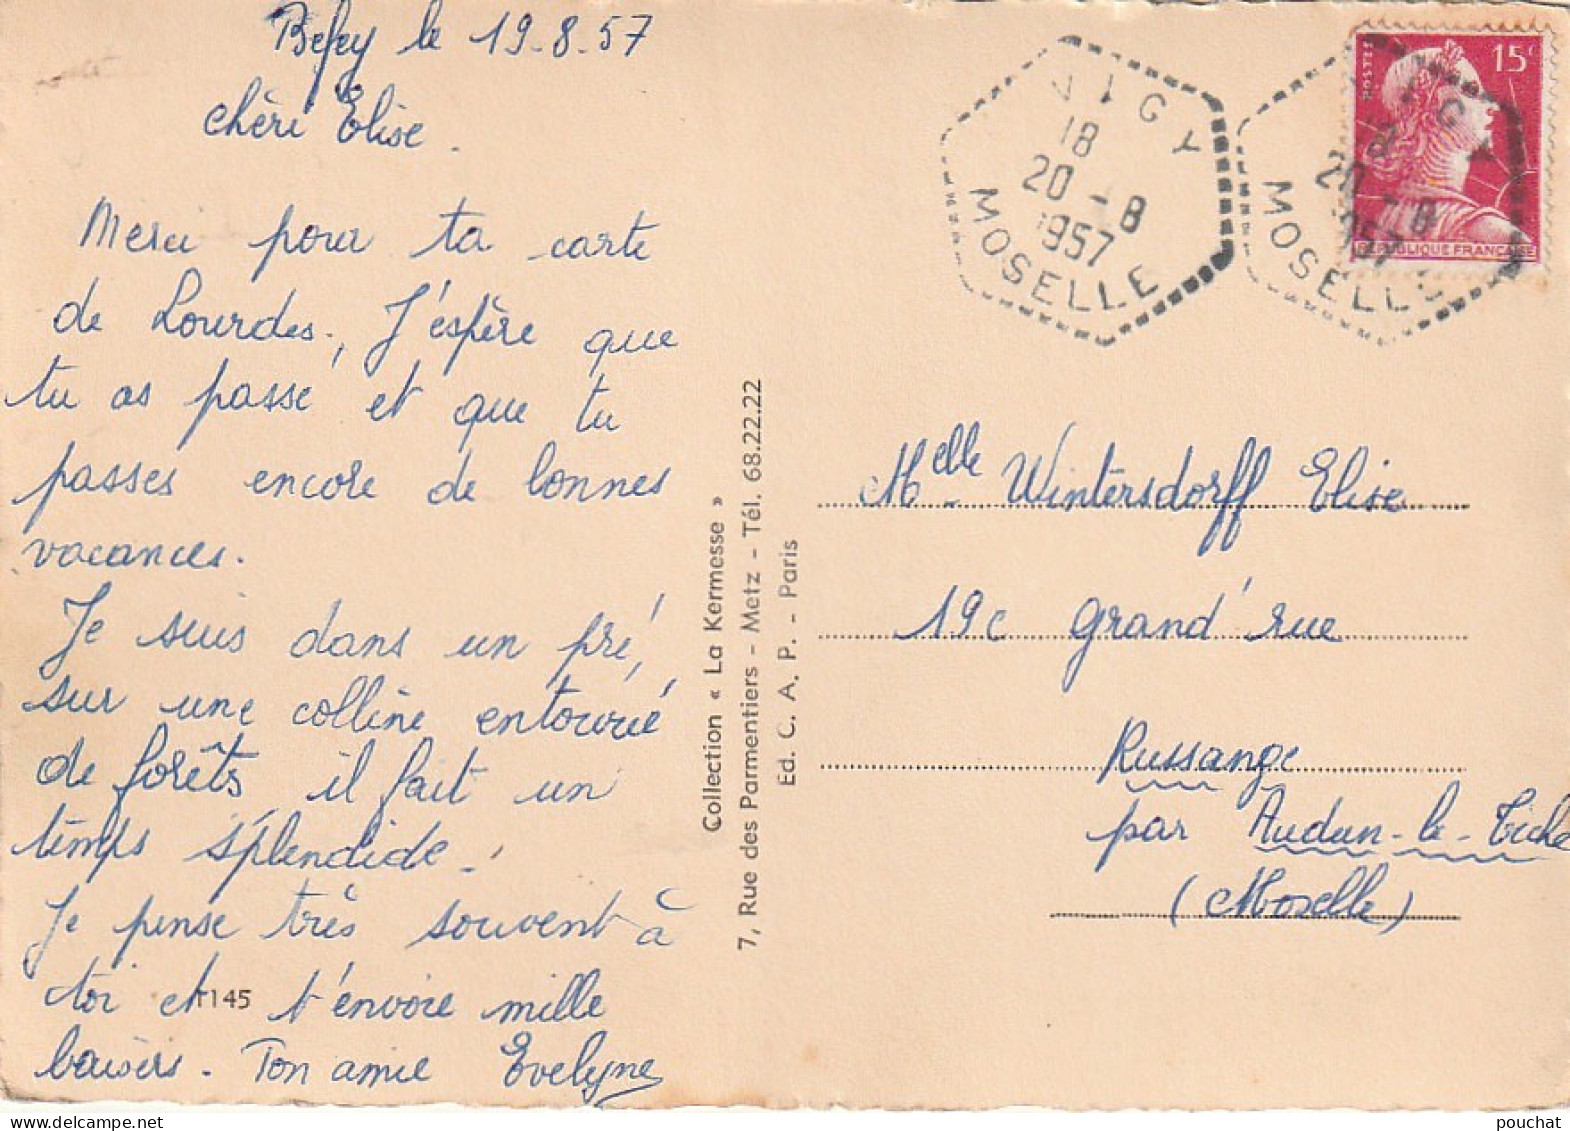 Befey le 19-8-57
chèri Élise.
Merci pour ta carte
de Lourdes, J'éspère que
tu as passé et que tu
passes encore de bonnes
vacances.
Je suis dans un pré,
sur une colline entourré
de forêts, il fait un
temps splendide.
Je pense très souvent à
toi et t'envoie mille
baisers. Ton amie Evelyne
1145
Collection « La Kermesse »
7, Rue des Parmentiers - Metz - Tél. 68.22.22
Ed. C. A. P. - Paris
VIGY
18
20 -8
1957
MOSELLE
POSTES
15c
REPUBLIQUE FRANCAISE
20 -8
1957
MOSELLE
Melle Wintersdorff Elise
19c Grand'rue
Russange
par Audun-le-Tiche
(Moselle)
pouchat